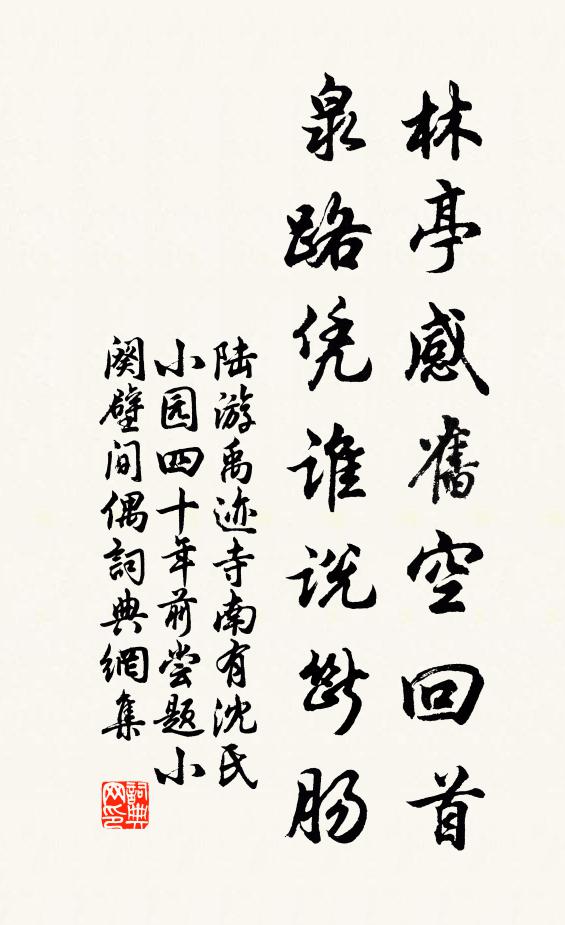 林亭感舊空回首
泉路凭谁说斷肠
陆游禹迹寺南有沈氏
小园四十年前尝题小
阕壁间偶詞典網集
詞典网印